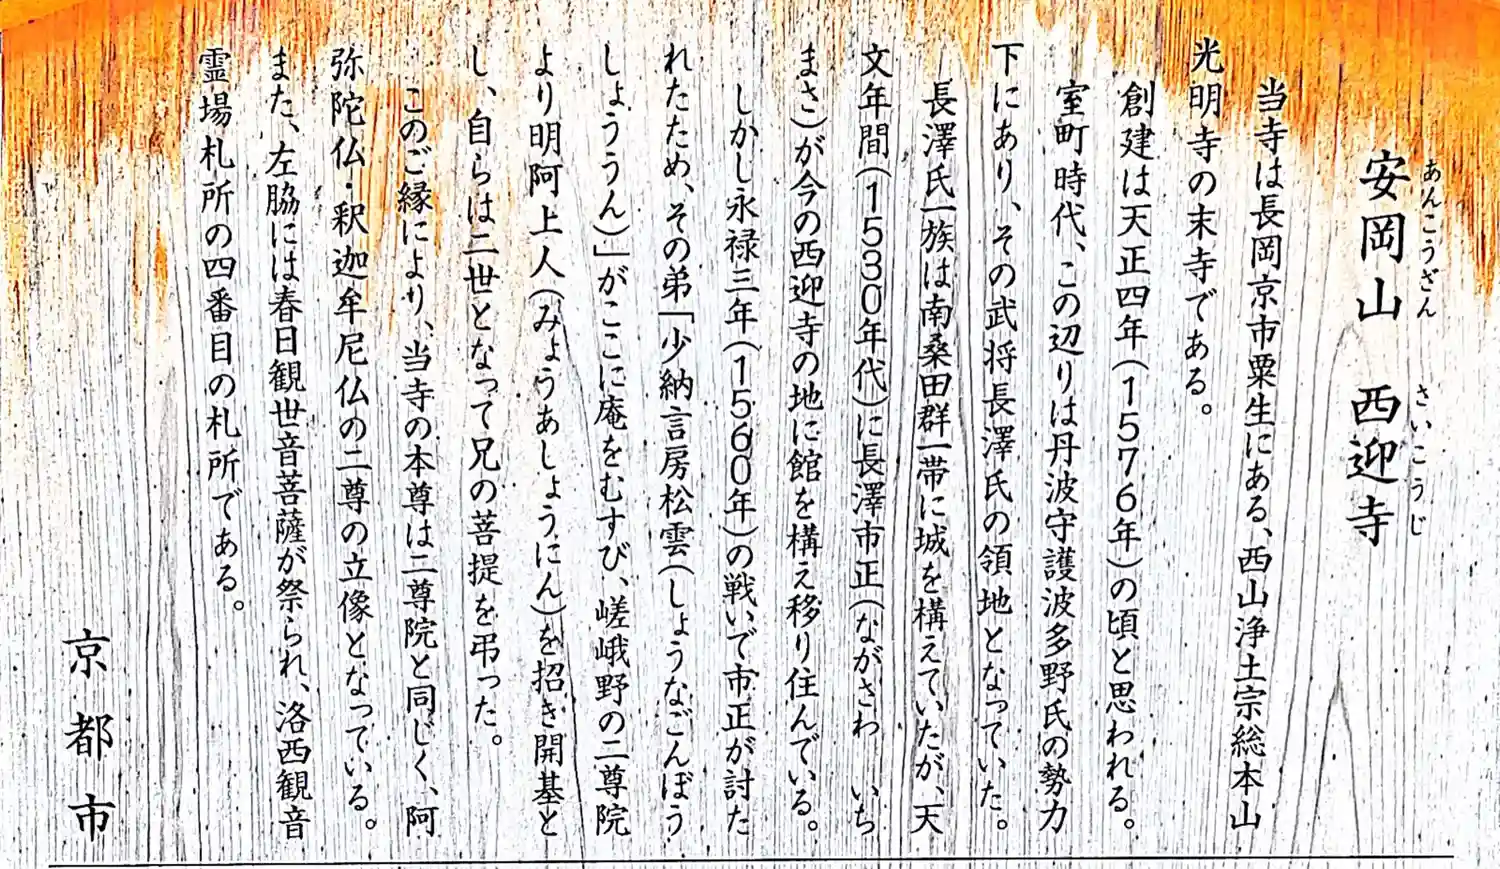 安岡山 西迎寺
あんこうざん さいこうじ
当寺は長岡京市粟生にある、西山浄土宗総本山
光明寺の末寺である。
創建は天正四年(1576年)の頃と思われる。
室町時代、この辺りは丹波守護波多野氏の勢力
下にあり、その武将長澤氏の領地となっていた。
長澤氏一族は南桑田群一帯に城を構えていたが、天
文年間(1530年代)に長澤市正(ながさわ いち
まさ)が今の西迎寺の地に館を構え移り住んでいる。
しかし永禄三年(1560年)の戦いで市正が討た
れたため、その弟「少納言房松雲(しょうなごんぼう
しょううん)」がここに庵をむすび、嵯峨野の二尊院
より明阿上人(みょうあしょうにん)を招き開基と
し、自らは二世となって兄の菩提を弔った。
このご縁により、当寺の本尊は二尊院と同じく、阿
弥陀仏・釈迦牟尼仏の二尊の立像となっている。
また、左脇には春日観世音菩薩が祭られ、洛西観音
霊場札所の四番目の札所である。
京都市